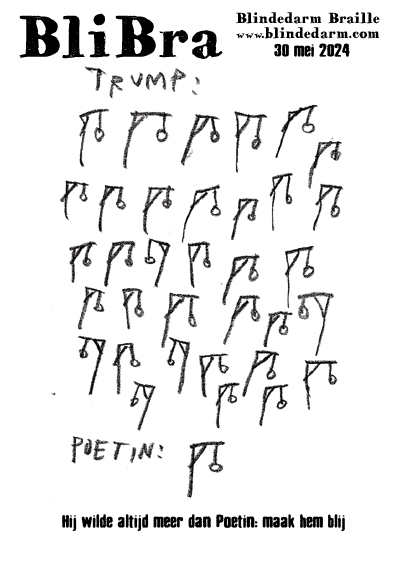 BliBra
Blindedarm Braille
www.blindedarm.com
30 mei 2024
TRUMP:
POETIN:
Hij wilde altijd meer dan Poetin: maak hem blij